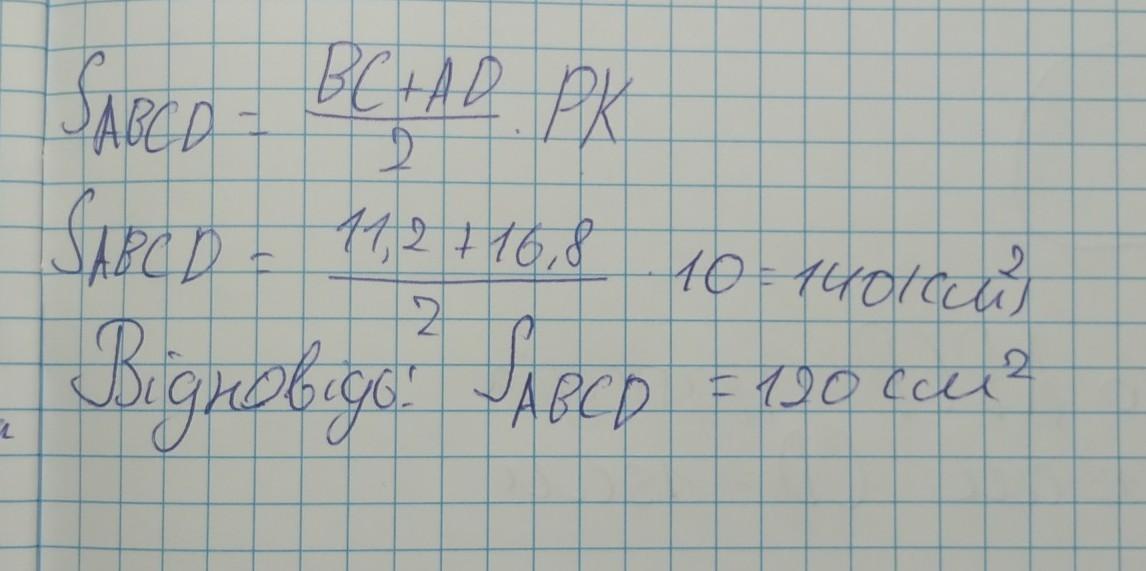 S_ABCD = (BC+AD)/2 · PK
S_ABCD = (11,2+16,8)/2 · 10 = 140 (см²)
Відповідь: S_ABCD = 190 см²